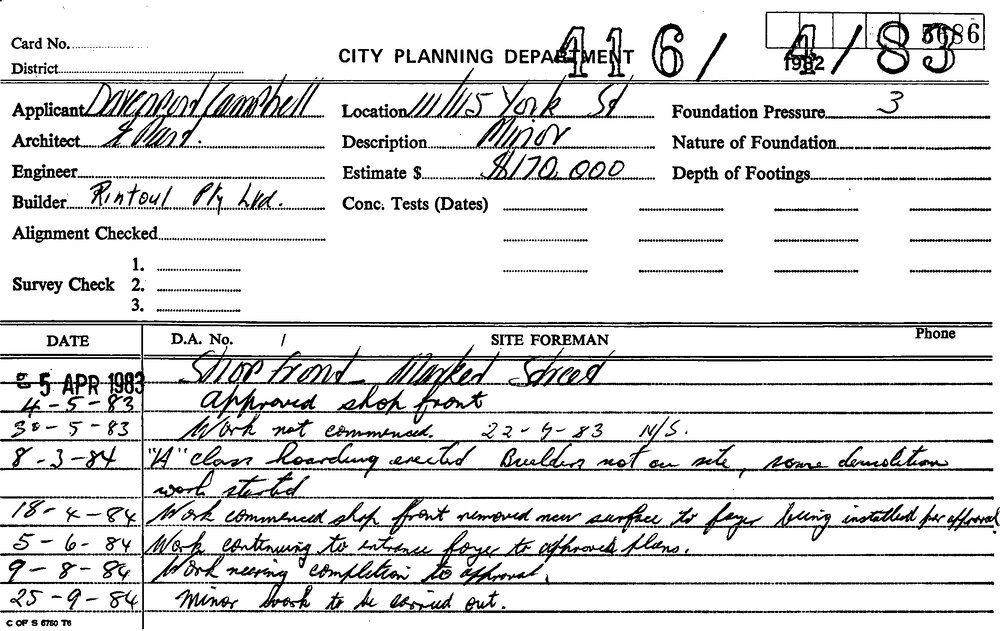 Card No.
District
CITY PLANNING DEPARTMENT
416/4/83
1982
Applicant Davenport Campbell
Location 111/115 York St
Foundation Pressure 3
Architect
Description Minor
Nature of Foundation
Engineer
Estimate $ $170,000
Depth of Footings
Builder Rintoul Pty Ltd.
Conc. Tests (Dates)
Alignment Checked
Survey Check
1.
2.
3.
DATE D.A. No. / SITE FOREMAN Phone
5 APR 1983 Shop front Market Street
4-5-83 approved shop front
30-5-83 Work not commenced. 22-9-83 N/S.
8-3-84 "A" class hoarding erected Builders not on site, some demolition
work started
18-4-84 Work commenced shop front removed new surface to foyer being installed per approval
5-6-84 Work continuing to entrance foyer to approved plans.
9-8-84 Work neering completion to approval.
25-9-84 Minor work to be carried out.
C OF S 6750 T6